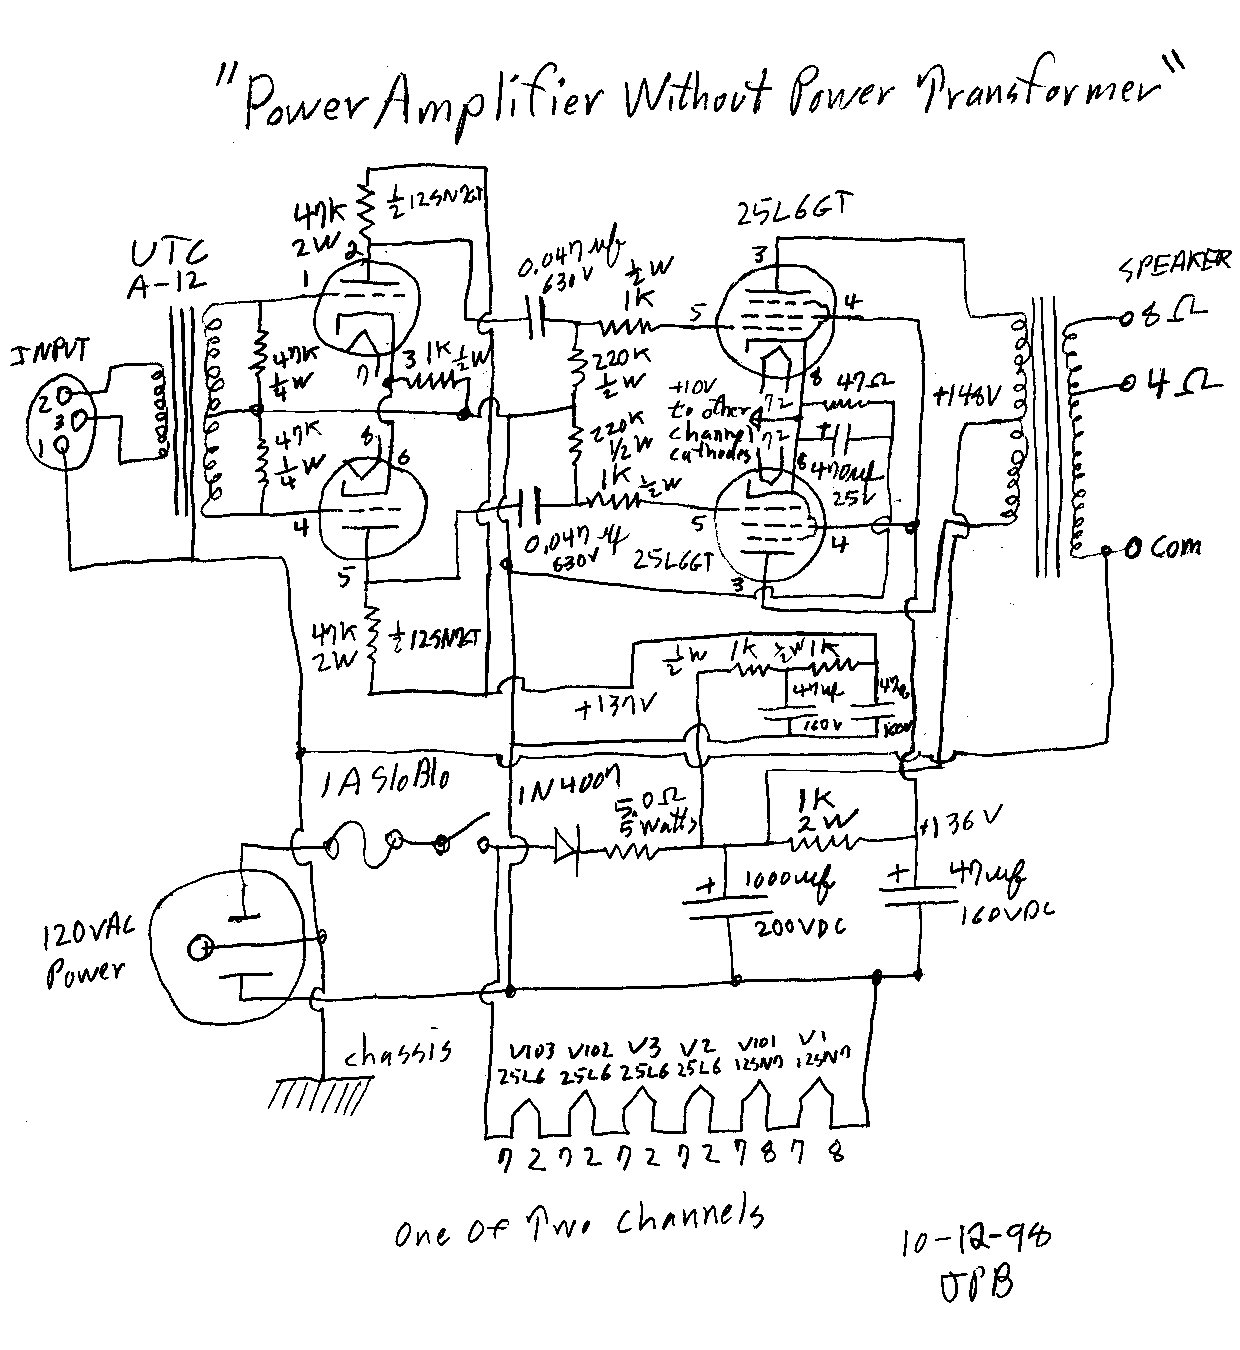 "Power Amplifier Without Power Transformer"
47K
2W
½ 12SN7GT
2
1
7
3
1K ½W
UTC
A-12
INPUT
2
3
1
47K
¼W
47K
¼W
8
6
4
5
47K
2W
½ 12SN7GT
0.047 µf
630V
½W
1K
220K
½W
220K
1/2W
1K
½W
0.047 µf
630V
25L6GT
3
5
4
8
7 2
+10V
to other
channel
cathodes
47Ω
7 2
8
+
470µf
25V
5
4
3
25L6GT
+148V
SPEAKER
8Ω
4Ω
Com
+137V
½W
1K
½W
1K
47µf
160V
1A SloBlo
1N4007
5.0Ω
5 Watts
1K
2W
+136V
+
1000µf
200VDC
+
47µf
160VDC
120VAC
Power
chassis
V103 V102 V3 V2 V101 V1
25L6 25L6 25L6 25L6 12SN7 12SN7
7 2 7 2 7 2 7 2 7 8 7 8
One of Two Channels
10-12-98
JPB